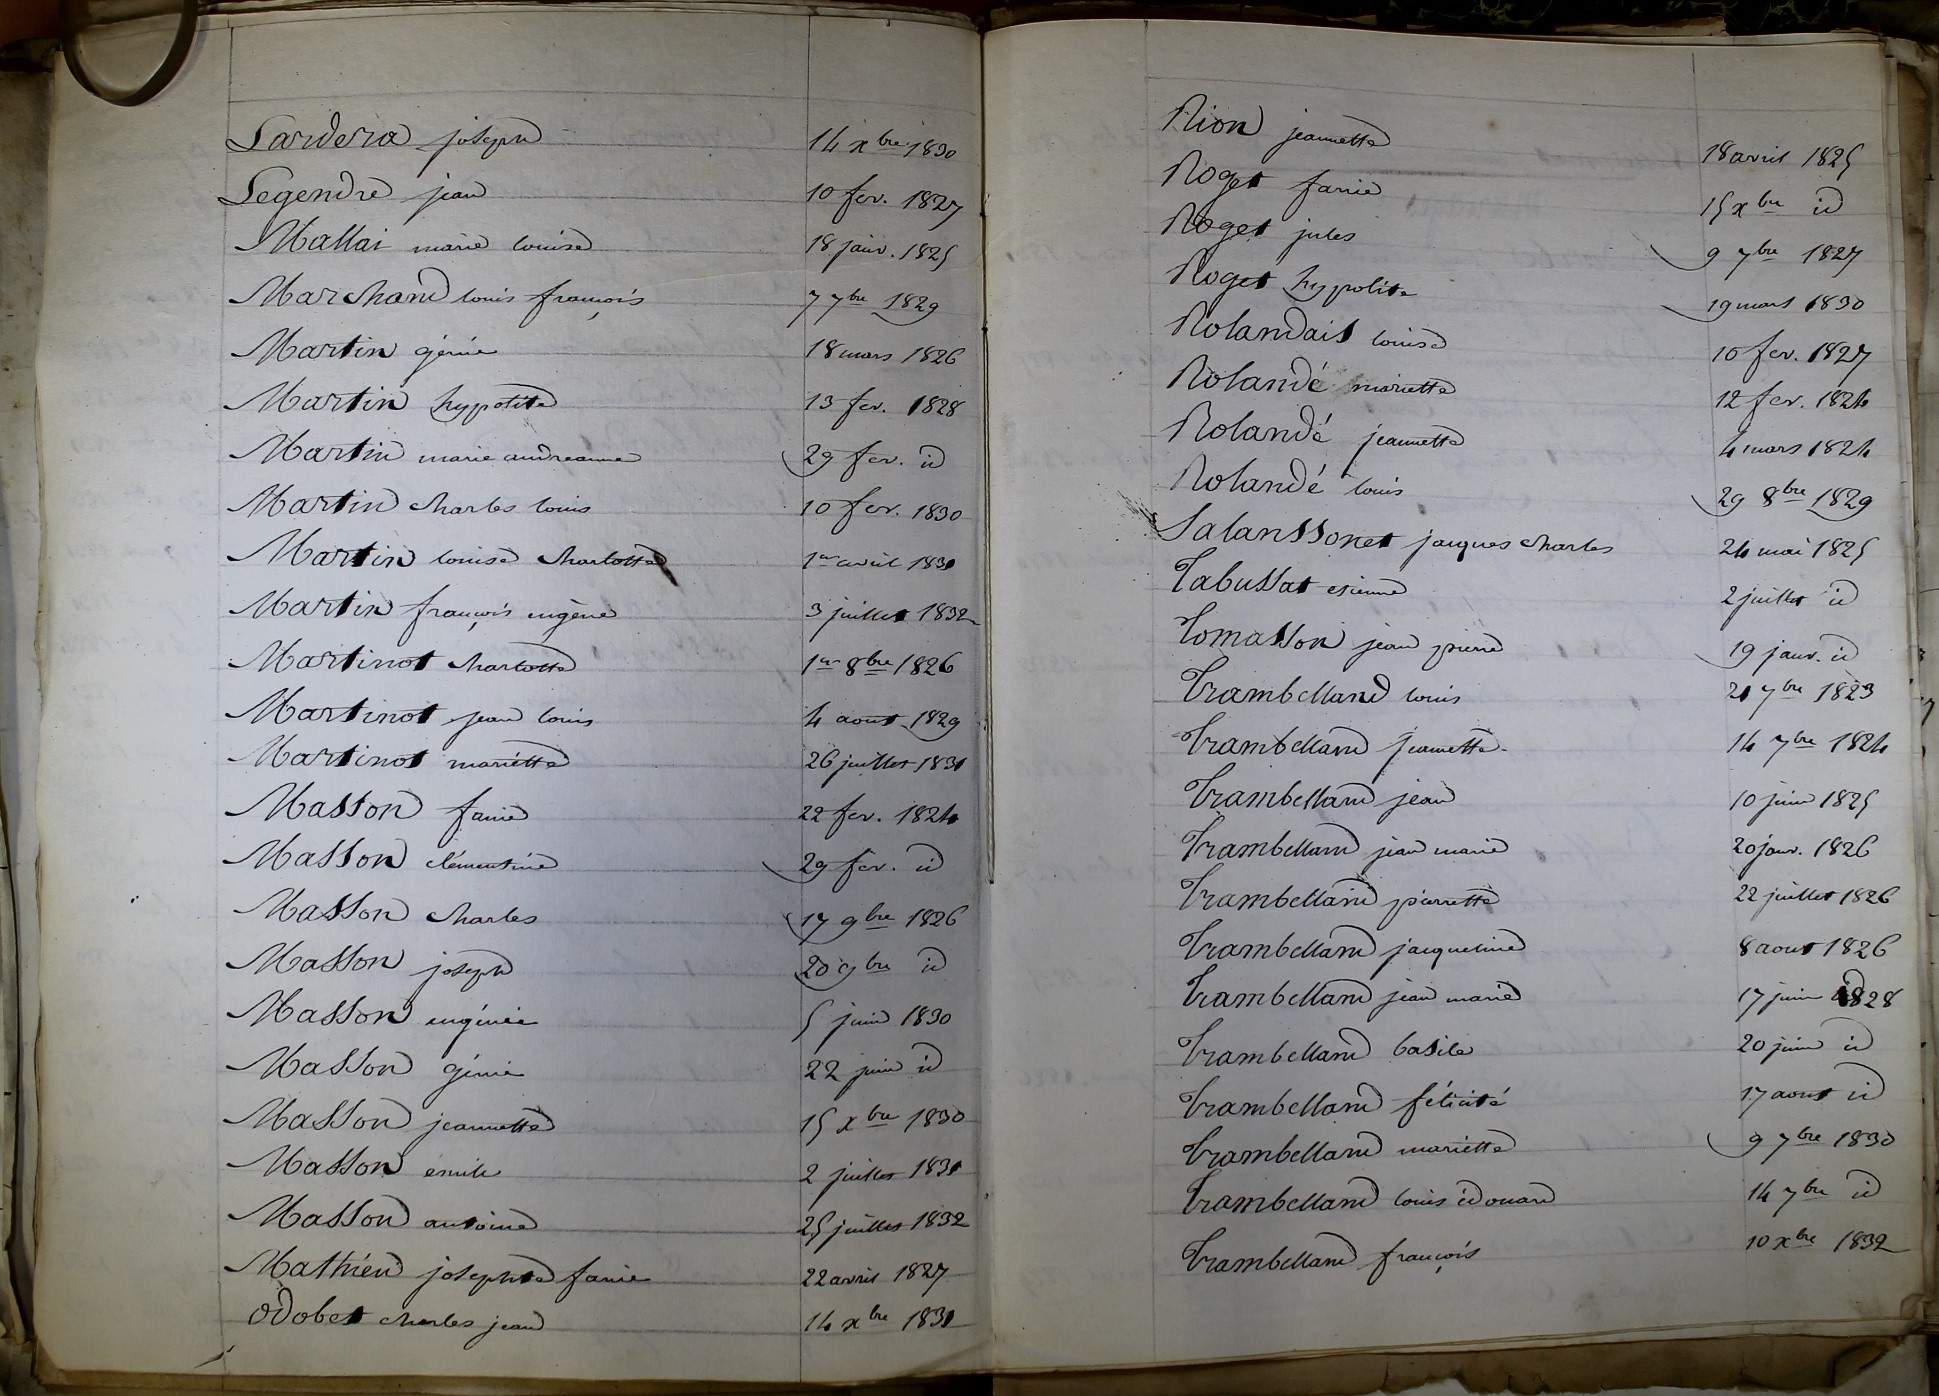 Lardera joseph 14 xbre 1830
Legendre jean 10 fev. 1827
Mallai marie louise 18 janv. 1825
Marchand louis françois 7 7bre 1829
Martin génie 18 mars 1826
Martin hypolite 13 fev. 1828
Martin marie andreanne 29 fev. id
Martin charles louis 10 fev. 1830
Martin louise charlotte 1er avril 1831
Martin françois eugène 3 juillet 1832
Martinot charlotte 1er 8bre 1826
Martinot jean louis 4 aout 1829
Martinot mariette 26 juillet 1831
Masson fanie 22 fev. 1824
Masson clémentine 29 fev. id
Masson charles 17 9bre 1826
Masson joseph 20 9bre id
Masson eugénie 5 juin 1830
Masson génie 22 juin id
Masson jeannette 15 xbre 1830
Masson emile 2 juillet 1831
Masson antoine 25 juillet 1832
Mathieu josephte fanie 22 avril 1827
Odobet charles jean 14 xbre 1831
Rion jeannette 18 avril 1825
Roget fanie 15 xbre id
Roget jules 9 7bre 1827
Roget hypolite 19 mars 1830
Rolandais louise 10 fev. 1827
Rolandé mariette 12 fev. 1824
Rolandé jeannette 4 mars 1824
Rolandé louis 29 8bre 1829
Salanssonet jacques charles 24 mai 1825
Tabussat etienne 2 juillet id
Tomasson jean pierre 19 janv. id
Trambelland louis 21 7bre 1823
Trambelland jeannette 14 7bre 1824
Trambelland jean 10 juin 1825
Trambelland jean marie 20 janv. 1826
Trambelland pierrette 22 juillet 1826
Trambelland jacqueline 8 aout 1826
Trambelland jean marie 17 juin 1828
Trambelland basile 20 juin id
Trambelland félicité 17 aout id
Trambelland mariette 9 7bre 1830
Trambelland louis édouard 14 7bre id
Trambelland françois 10 xbre 1832